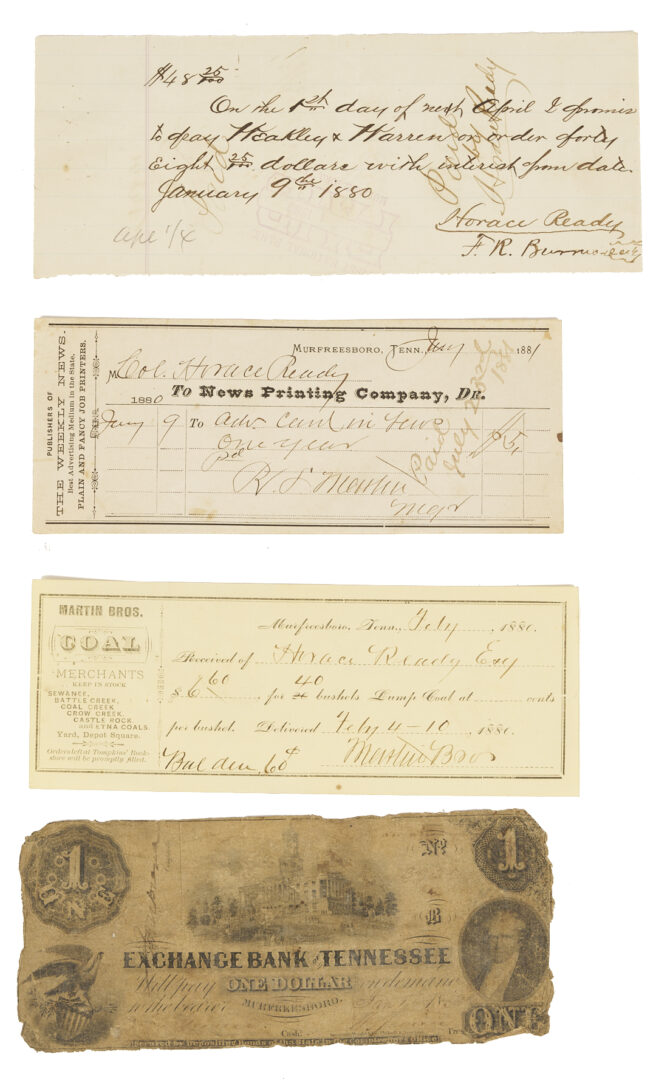 $48 25/100
On the 1st day of next April I promis
to pay Weakley & Warren or order forty
Eight 25/100 dollars with interest from date.
January 9th 1880
Horace Ready
F. R.
Paid
PUBLISHERS OF
THE WEEKLY NEWS.
Best Advertising Medium in the State.
PLAIN AND FANCY JOB PRINTERS.
MURFREESBORO, TENN., Jany 1881
M Col. Horace Ready
1880 To News Printing Company, DR.
Jany 9 To adv. card in News
one year
Mgr
Paid
July
1881
MARTIN BROS.
COAL
MERCHANTS
KEEP IN STOCK
SEWANEE,
BATTLE CREEK,
COAL CREEK,
CROW CREEK,
CASTLE ROCK
and ETNA COALS.
Yard, Depot Square.
Orders left at Tompkins' Book-
store will be promptly filled.
Murfreesboro, Tenn., Feby, 1880.
Received of Horace Ready Esq
$6 60 for 40 bushels Lump Coal at cents
per bushel. Delivered Feby 4-10, 1880.
Bal due 60¢ Martin Bros
1
ONE
No
B
1
EXCHANGE BANK OF TENNESSEE
Will pay ONE DOLLAR on demand
to the bearer
MURFREESBORO.
Cash.
Pres
ONE
Secured by Depositing Bonds of the State in the Comptroller's Office